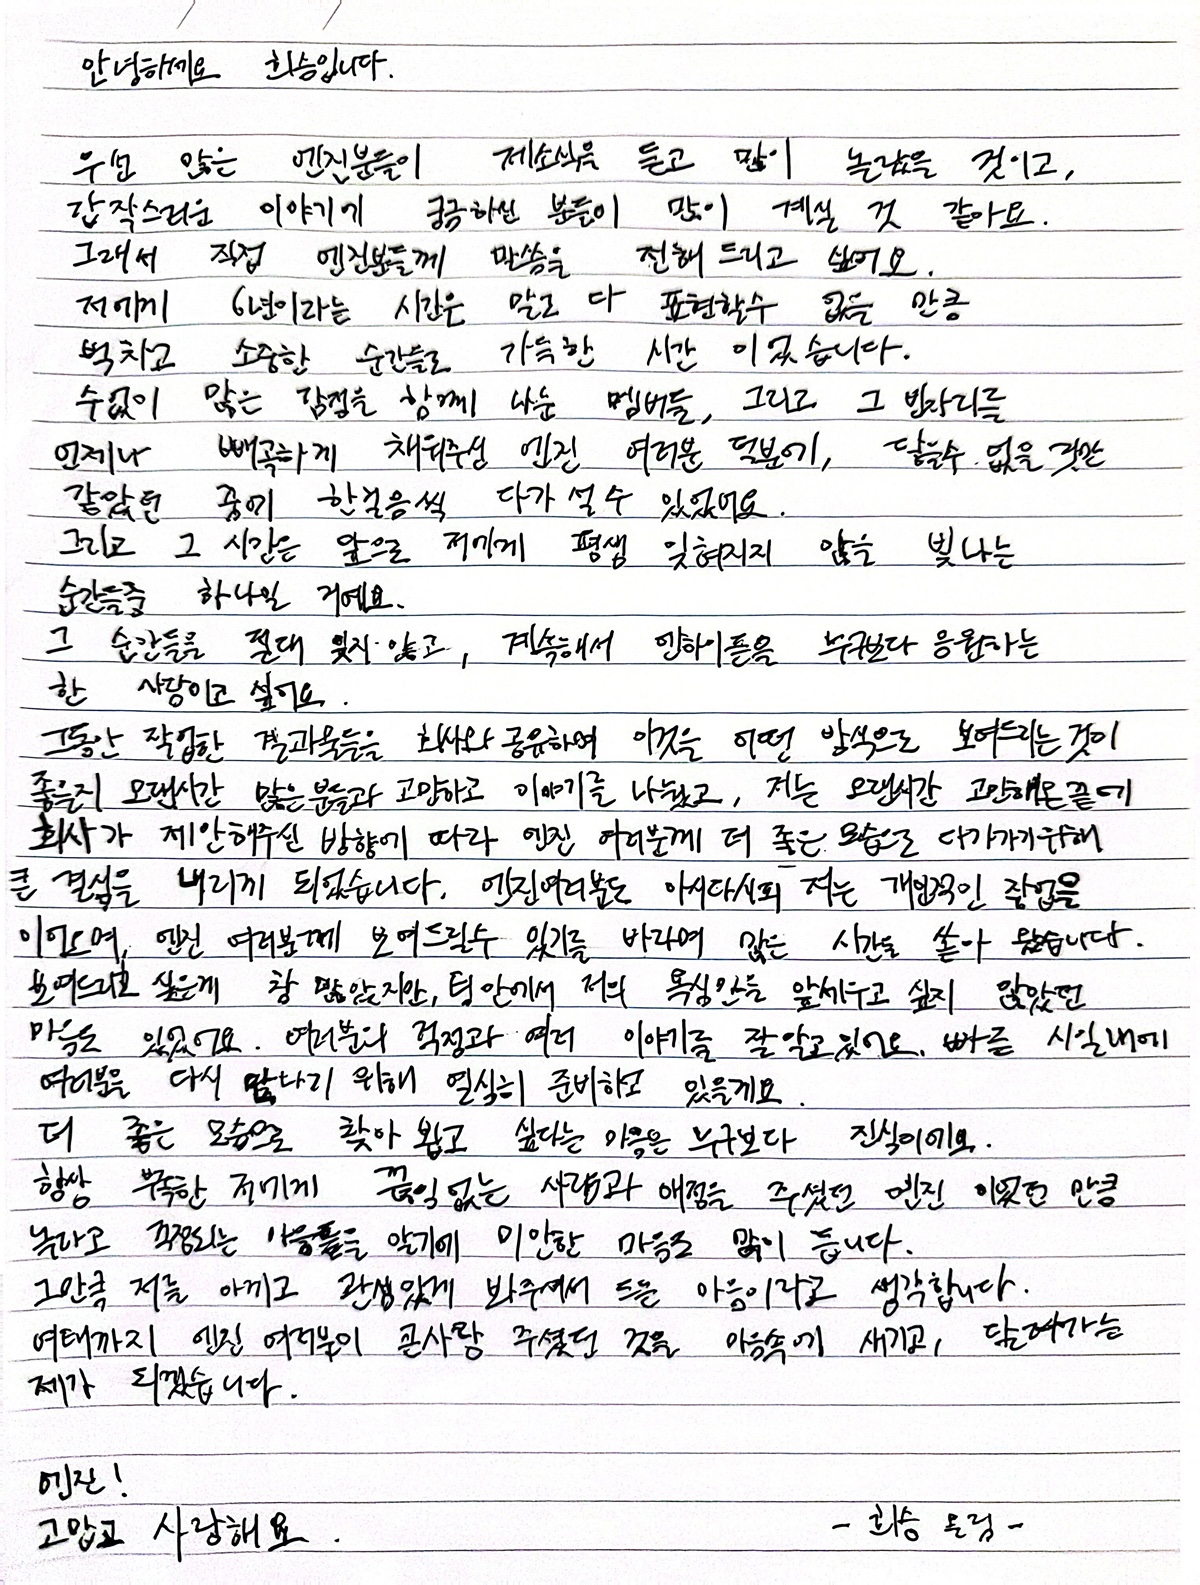 안녕하세요 희승입니다.
우선 많은 엔진분들이 제소식을 듣고 많이 놀랐을 것이고,
갑작스러운 이야기에 궁금하신 분들이 많이 계실 것 같아요.
그래서 직접 엔진분들께 말씀을 전해 드리고 싶어요.
저에게 6년이라는 시간은 말로 다 표현할수 없을 만큼
벅차고 소중한 순간들로 가득한 시간 이었습니다.
수없이 많은 감정을 함께 나눈 멤버들, 그리고 그 빈자리를
언제나 빼곡하게 채워주신 엔진 여러분 덕분에, 닿을수 없을 것만
같았던 꿈에 한걸음씩 다가설수 있었어요.
그리고 그 시간은 앞으로 저에게 평생 잊혀지지 않을 빛나는
순간들중 하나일 거예요.
그 순간들을 절대 잊지 않고, 계속해서 엔하이픈을 누구보다 응원하는
한 사람이고 싶어요.
그동안 작업한 결과물들을 회사와 공유하며 이것을 어떤 방식으로 보여드리는것이
좋을지 오랜시간 많은분들과 고민하고 이야기를 나눴고, 저는 오랜시간 고민해온끝에
회사가 제안해주신 방향에 따라 엔진 여러분께 더 좋은 모습으로 다가가기위해
큰 결심을 내리게 되었습니다. 엔진여러분도 아시다시피 저는 개인적인 작업을
이어오며, 엔진 여러분께 보여드릴수 있기를 바라며 많은 시간을 쏟아 왔습니다.
보여드리고 싶은게 참 많았지만, 팀안에서 저의 욕심만을 앞세우고 싶지 않았던
마음도 있었어요. 여러분의 걱정과 여러 이야기를 잘 알고있어요. 빠른 시일내에
여러분을 다시 만나기 위해 열심히 준비하고 있을게요.
더 좋은 모습으로 찾아 뵙고 싶다는 마음은 누구보다 진심이에요.
항상 부족한 저에게 끊임없는 사랑과 애정을 주셨던 엔진 이었던 만큼
놀라고 걱정되는 마음들을 알기에 미안한 마음도 많이 듭니다.
그만큼 저를 아끼고 관심있게 봐주셔서 드는 마음이라고 생각합니다.
여태까지 엔진 여러분이 큰사랑 주셨던 것을 마음속에 새기고, 달려가는
제가 되겠습니다.
엔진!
고맙고 사랑해요.
- 희승 올림 -